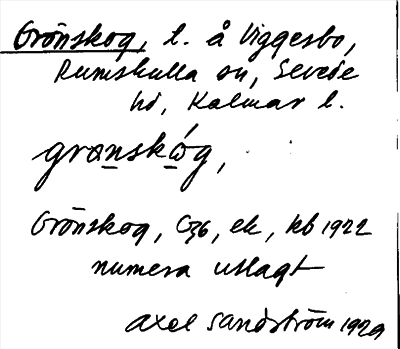 Grönskog, l. å Viggesbo,
Rumskulla sn, Sevede
hd, Kalmar l.
gronskóg,
Grönskog, C36, ek, kb 1922
numera utlagt
Axel Sandström 1929